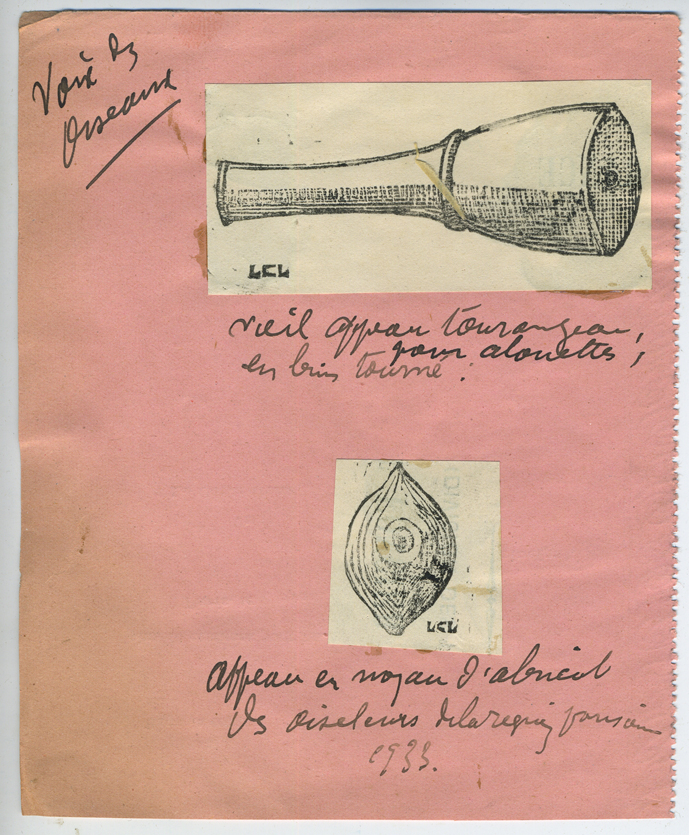 Voix des
Oiseaux
LCL
vieil appeau tourangeau,
pour alouettes,
en bois tourné.
LCL
appeau en noyau d'abricot
des oiseleurs de la région parisienne
1933.